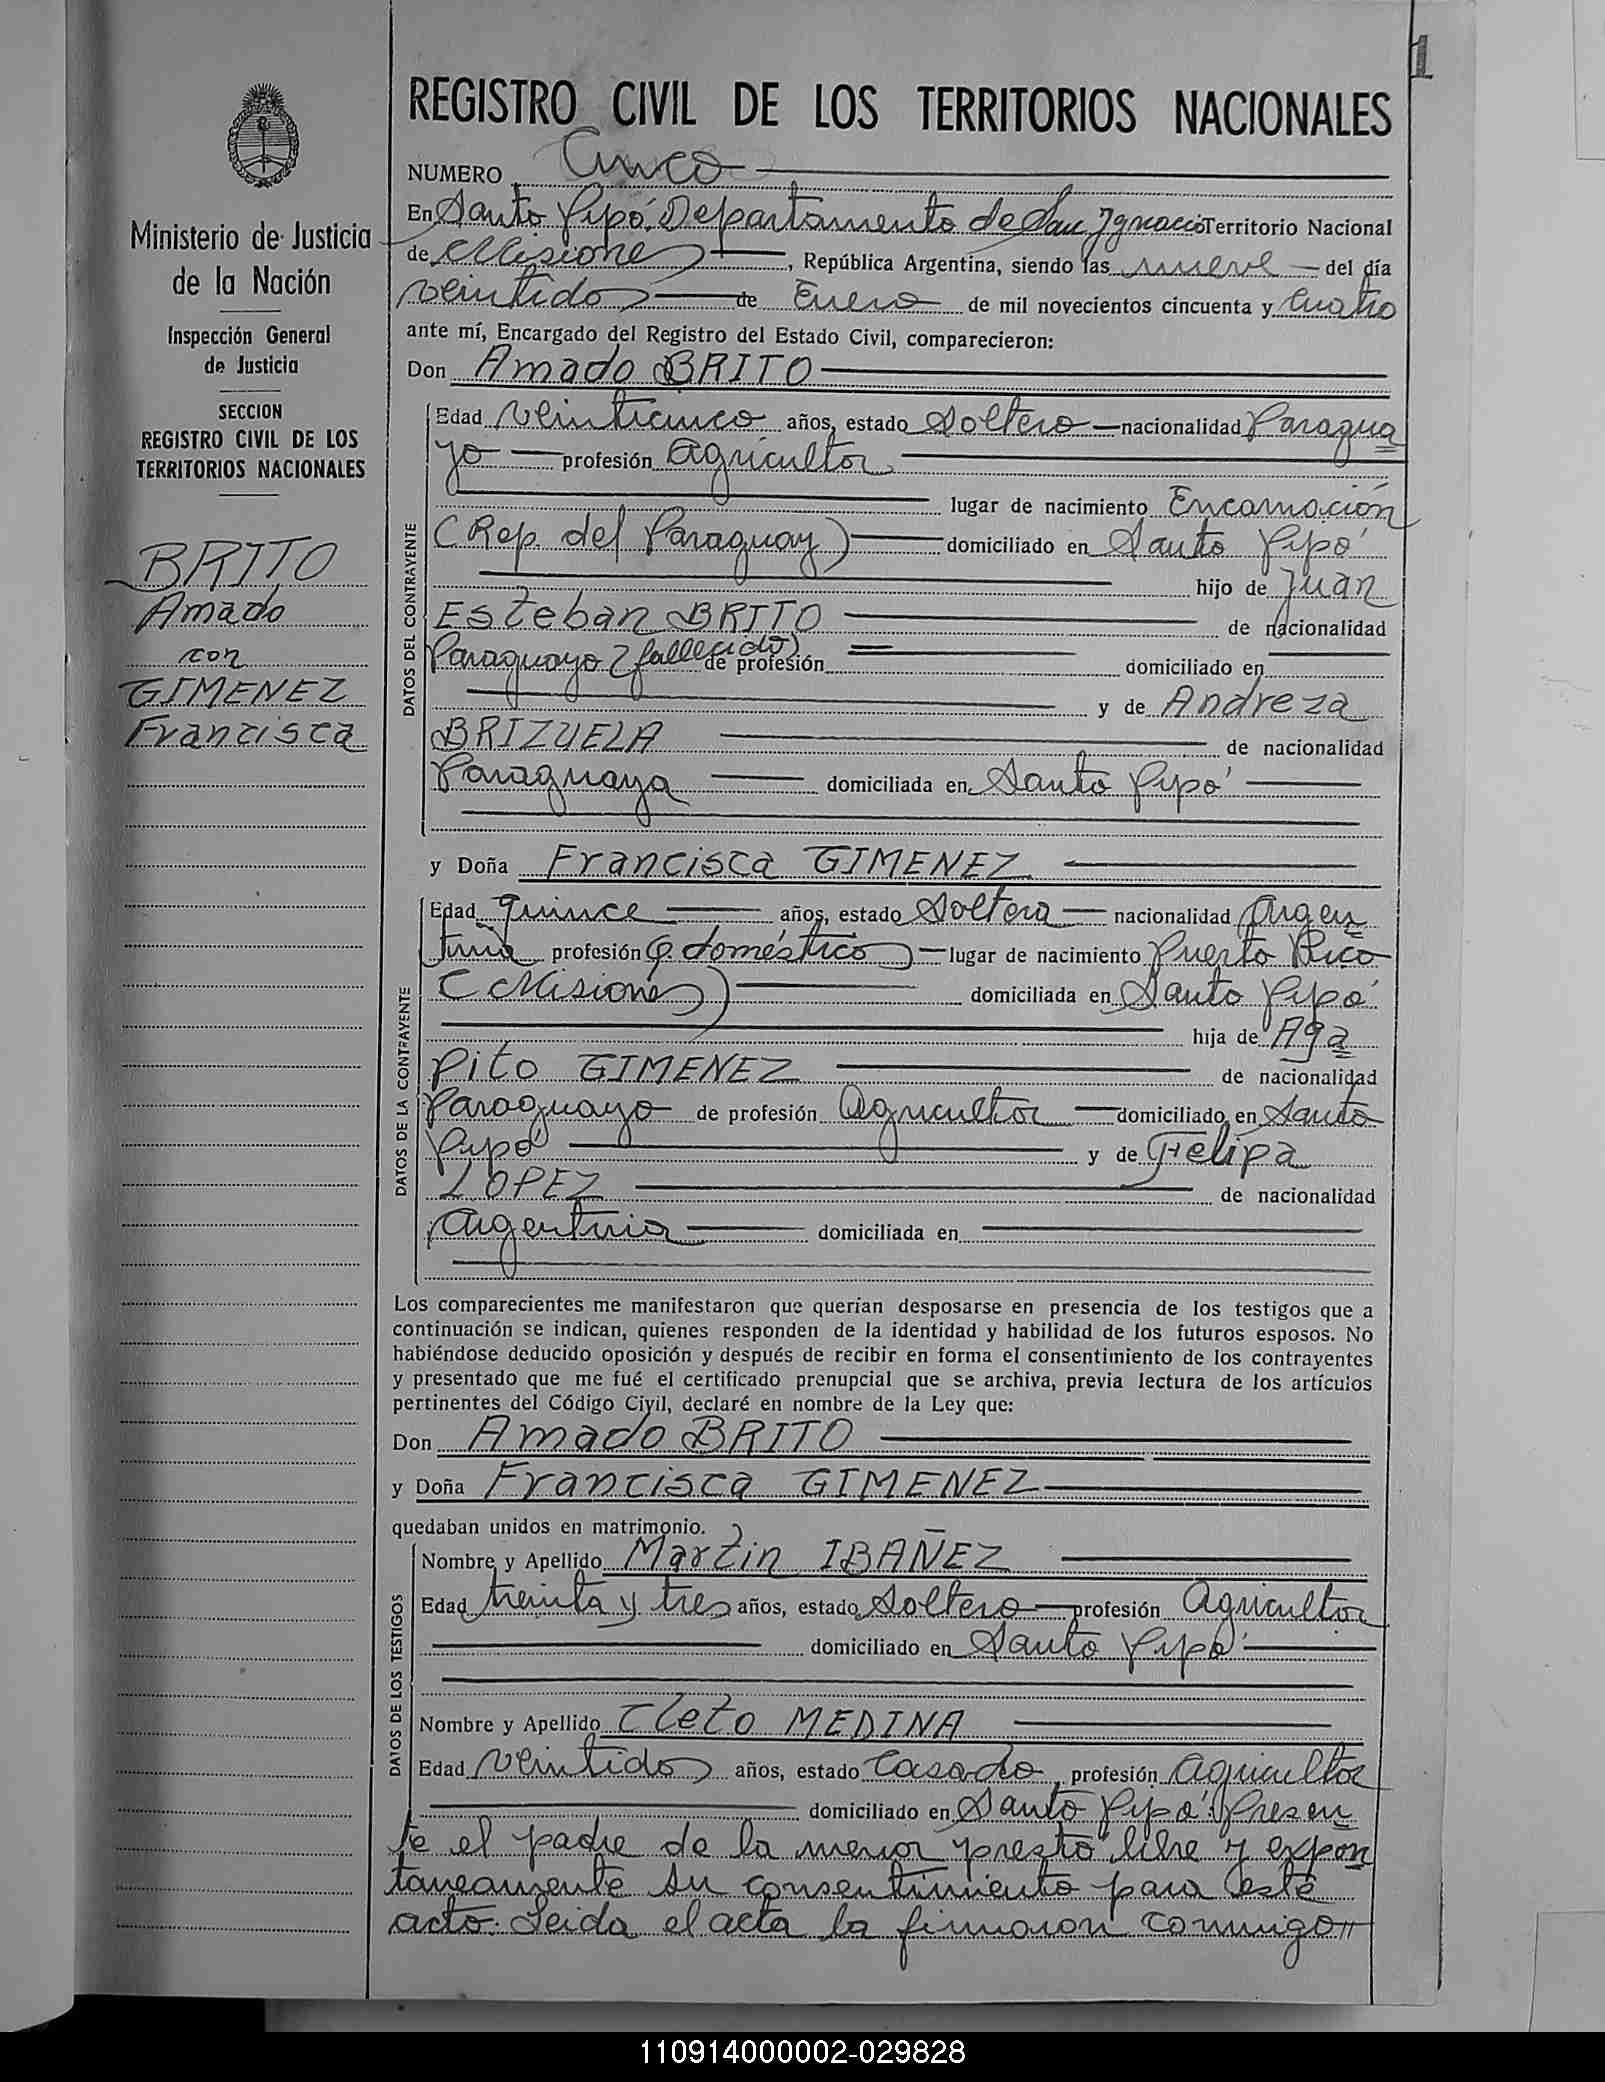 1
REGISTRO CIVIL DE LOS TERRITORIOS NACIONALES
Ministerio de Justicia
de la Nación
Inspección General
de Justicia
SECCION
REGISTRO CIVIL DE LOS
TERRITORIOS NACIONALES
BRITO
Amado
con
GIMENEZ
Francisca
NUMERO Cinco
En Santo Pipó. Departamento de San Ignacio Territorio Nacional
de Misiones, República Argentina, siendo las nueve del día
veintidos de Enero de mil novecientos cincuenta y Cuatro
ante mí, Encargado del Registro del Estado Civil, comparecieron:
Don Amado BRITO
DATOS DEL CONTRAYENTE
Edad veinticinco años, estado Soltero nacionalidad Paragua
yo profesión agricultor
lugar de nacimiento Encarnación
(Rep. del Paraguay) domiciliado en Santo Pipó
hijo de Juan
Esteban BRITO de nacionalidad
Paraguayo (fallecido) de profesión domiciliado en
y de Andreza
BRIZUELA de nacionalidad
Paraguaya domiciliada en Santo Pipó
y Doña Francisca GIMENEZ
DATOS DE LA CONTRAYENTE
Edad quince años, estado Soltera nacionalidad Argen
tina profesión Q. domésticos lugar de nacimiento Puerto Rico
(Misiones) domiciliada en Santo Pipó
hija de Aga
pito GIMENEZ de nacionalidad
Paraguayo de profesión Agricultor domiciliado en Santo
Pipó y de Felipa
LOPEZ de nacionalidad
Argentina domiciliada en
Los comparecientes me manifestaron que querían desposarse en presencia de los testigos que a
continuación se indican, quienes responden de la identidad y habilidad de los futuros esposos. No
habiéndose deducido oposición y después de recibir en forma el consentimiento de los contrayentes
y presentado que me fué el certificado prenupcial que se archiva, previa lectura de los artículos
pertinentes del Código Civil, declaré en nombre de la Ley que:
Don Amado BRITO
y Doña Francisca GIMENEZ
quedaban unidos en matrimonio.
DATOS DE LOS TESTIGOS
Nombre y Apellido Martin IBAÑEZ
Edad treinta y tres años, estado Soltero profesión Agricultor
domiciliado en Santo Pipó
Nombre y Apellido Cleto MEDINA
Edad veintidos años, estado Casado, profesión Agricultor
domiciliado en Santo Pipó. Presen
te el padre de la menor prestó libre y expon
taneamente su consentimiento para este
acto. Leida el acta la firmaron conmigo
110914000002-029828